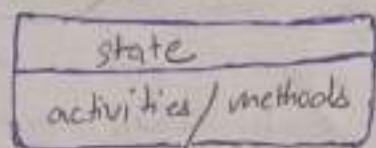 state
activities / methods